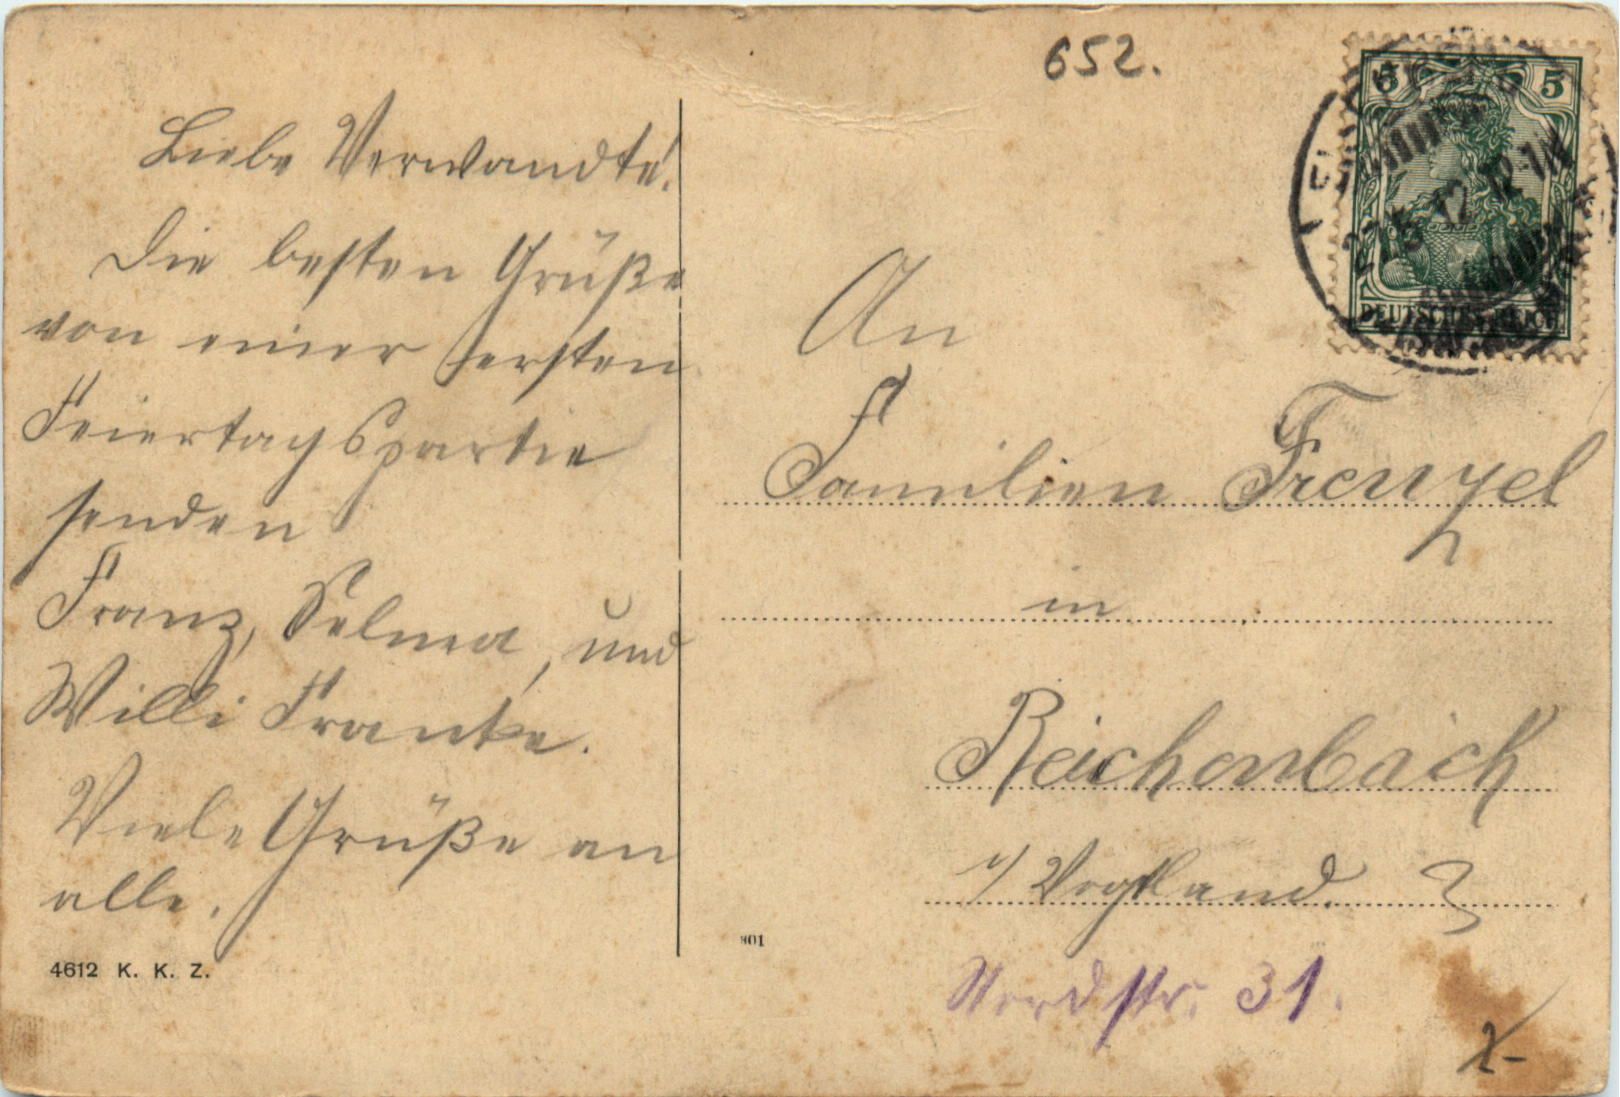 652.
5 5
DEUTSCHES REICH
Liebe Verwandte!
Die besten Grüße
von einer ersten
Feiertagspartie
senden
Franz, Selma, und
Willi Franke.
Viele Grüße an
alle.
4612 K. K. Z.
801
An
Familien Frenzel
in
Reichenbach
i/ Vogtland. 3
Nordstr. 31.